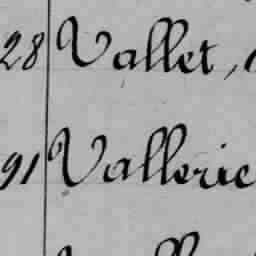 28 Vallet,
91 Vallerie